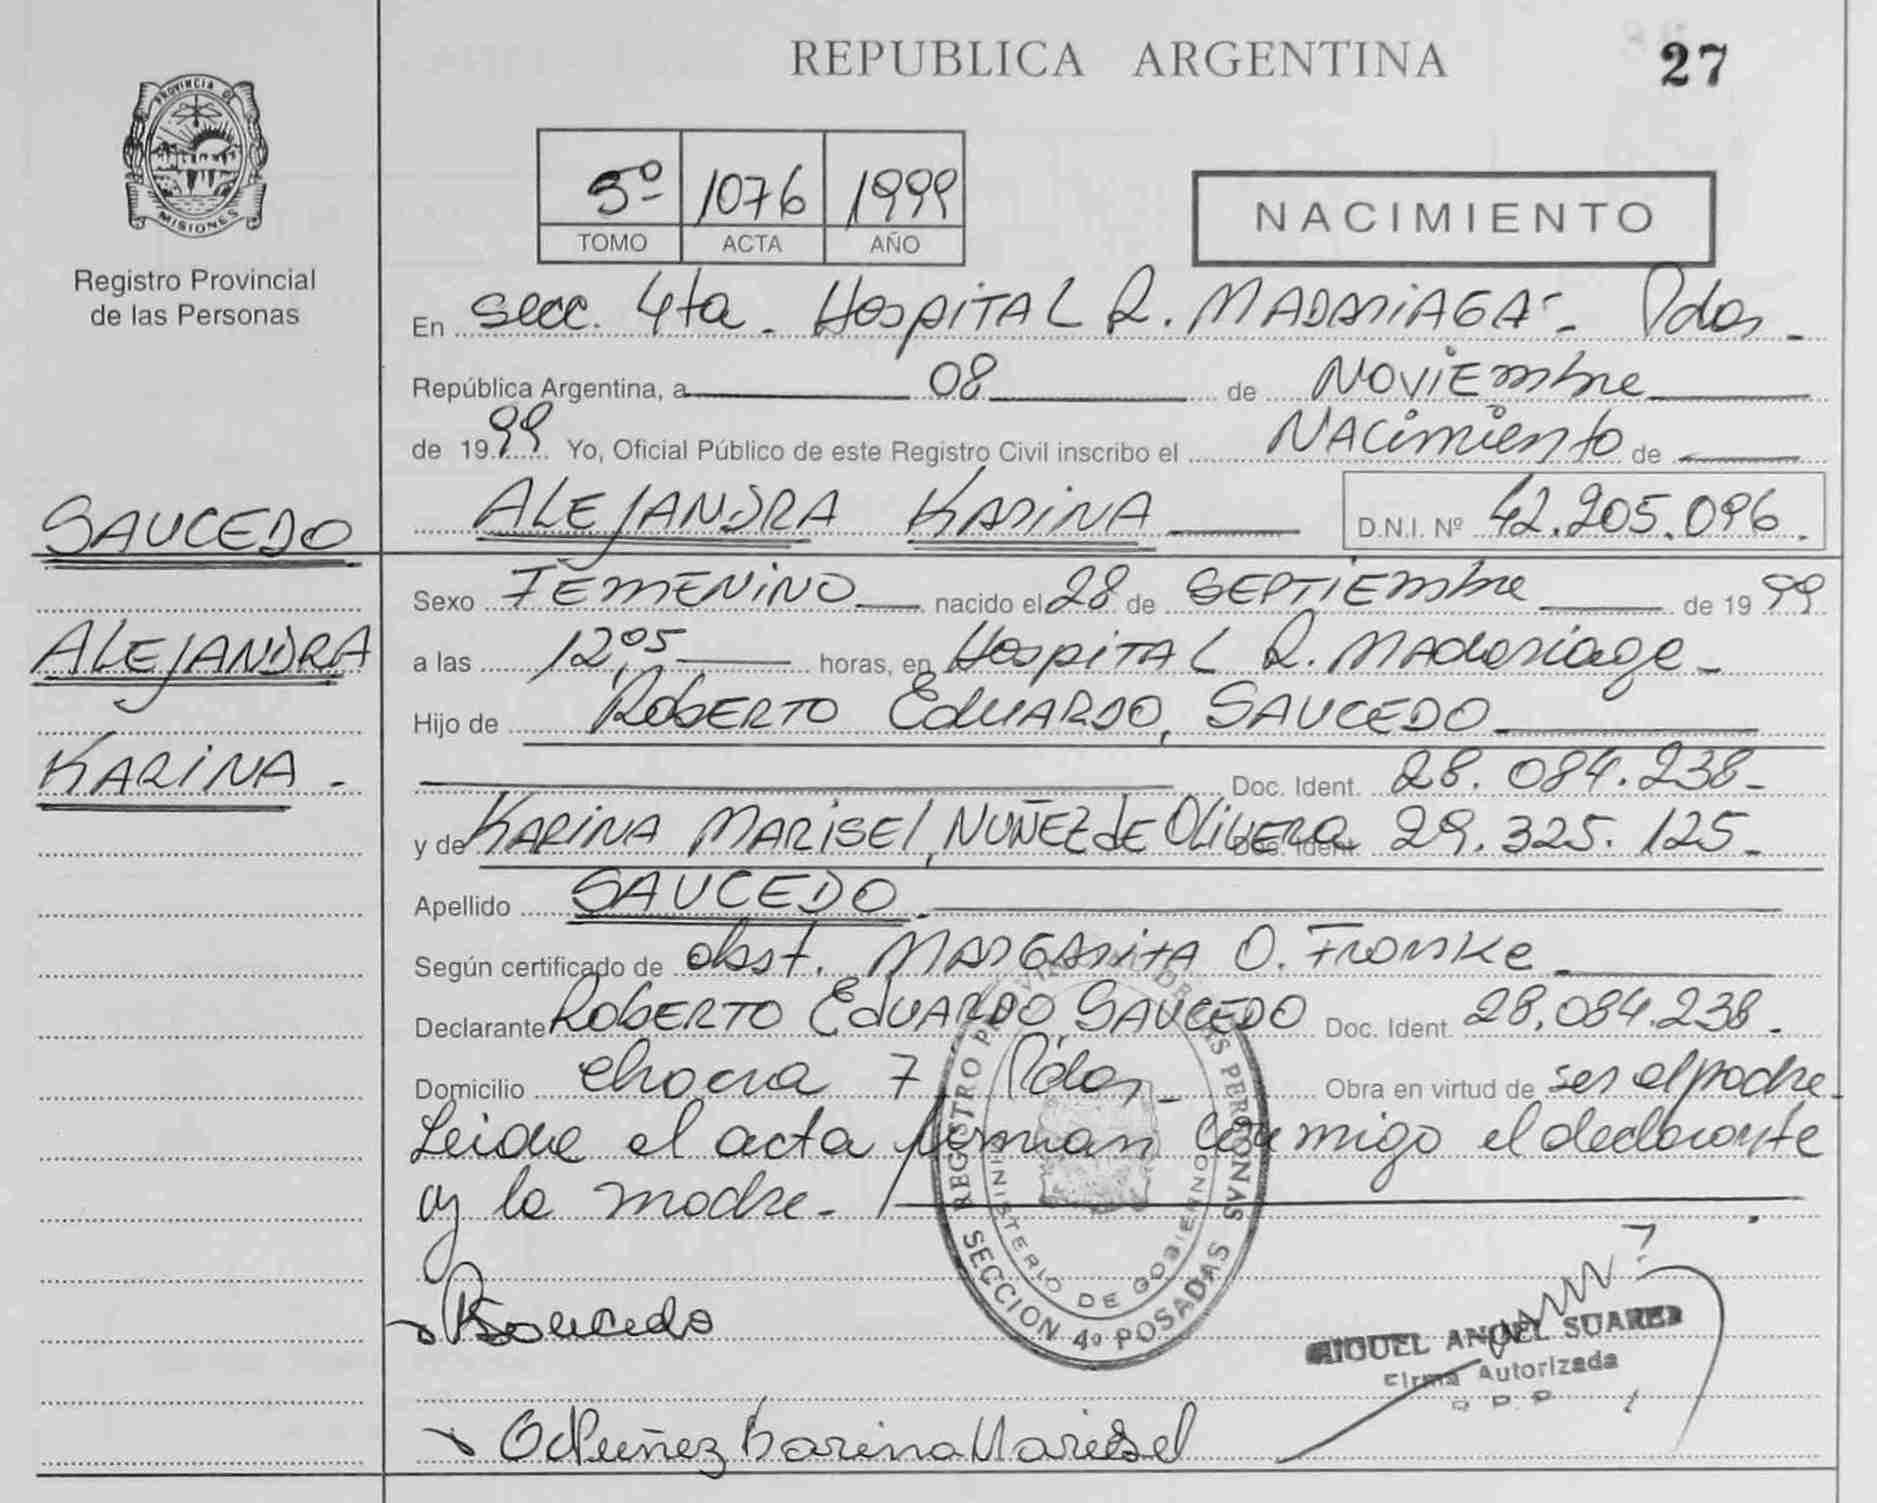 REPUBLICA ARGENTINA
27
PROVINCIA DE
MISIONES
Registro Provincial
de las Personas
5º 1076 1999
TOMO ACTA AÑO
NACIMIENTO
En secc. 4ta. HOSPITAL R. MADARIAGA - Pdas -
República Argentina, a 08 de NOVIEmbre
de 1999 Yo, Oficial Público de este Registro Civil inscribo el NACimiento de
ALEJANDRA KARINA D.N.I. Nº 42.205.096.
SAUCEDO
ALEJANDRA
KARINA -
Sexo FEMENINO nacido el 28 de SEPTIEmbre de 1999
a las 12,05 horas, en HOSPITAL R. Madariaga -
Hijo de ROBERTO EDUARDO, SAUCEDO
Doc. Ident. 28.084.238-
y de KARINA MARISEL, NUÑEZ DE OLIVERA Doc. Ident. 29.325.125-
Apellido SAUCEDO
Según certificado de obst. MARGARITA O.
Declarante ROBERTO EDUARDO SAUCEDO Doc. Ident. 28.084.238-
Domicilio chacra 7 Pdas - Obra en virtud de ser el padre -
Leida el acta firman conmigo el declarante
y la madre -
REGISTRO PERSONAS
MINISTERIO DE GOBIERNO
SECCION 4º POSADAS
Saucedo
MIGUEL ANGEL SUAREZ
Firma Autorizada
Nuñez Karina Marisel